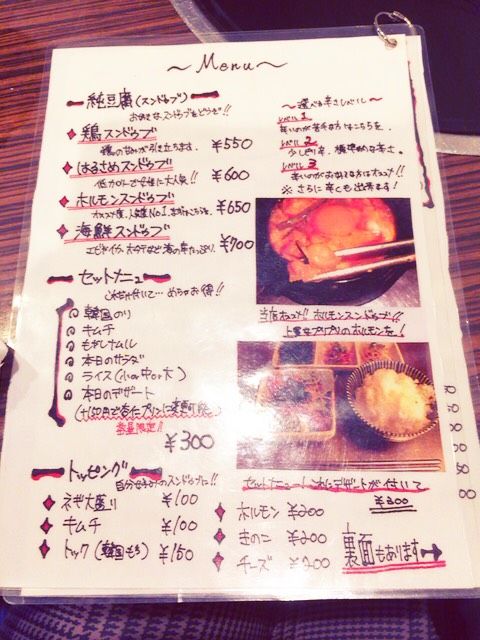 ～Menu～
純豆腐(スンドゥブ)
鶏スンドゥブ ¥550
鶏の甘みが引き立ちます。
はるさめスンドゥブ ¥600
低カロリーで女性に大人気!!
ホルモンスンドゥブ ¥650
海鮮スンドゥブ ¥700
エビやイカ、ホタテなど海の幸たっぷり。
～選べる辛さレベル～
レベル1
辛いのが苦手な方はこちらを。
レベル2
少し辛く、標準的な辛さ。
レベル3
辛いのがお好きな方はオススメ!!
※さらに辛くも出来ます!
当店オススメ!! ホルモンスンドゥブ!!
上質なプリプリのホルモンを!
セットメニュー
これだけ付いて…めちゃお得!!
韓国のり
キムチ
もやしナムル
本日のサラダ
ライス(小or中or大)
本日のデザート
(+150円で杏仁プリンに変更可能)
数量限定!!
¥300
セットメニューこれにデザートが付いて
¥300
トッピング
自分好みのスンドゥブに!!
ネギ大盛り ¥100
キムチ ¥100
トック(韓国もち) ¥150
ホルモン ¥200
きのこ ¥200
チーズ ¥200
裏面もあります→